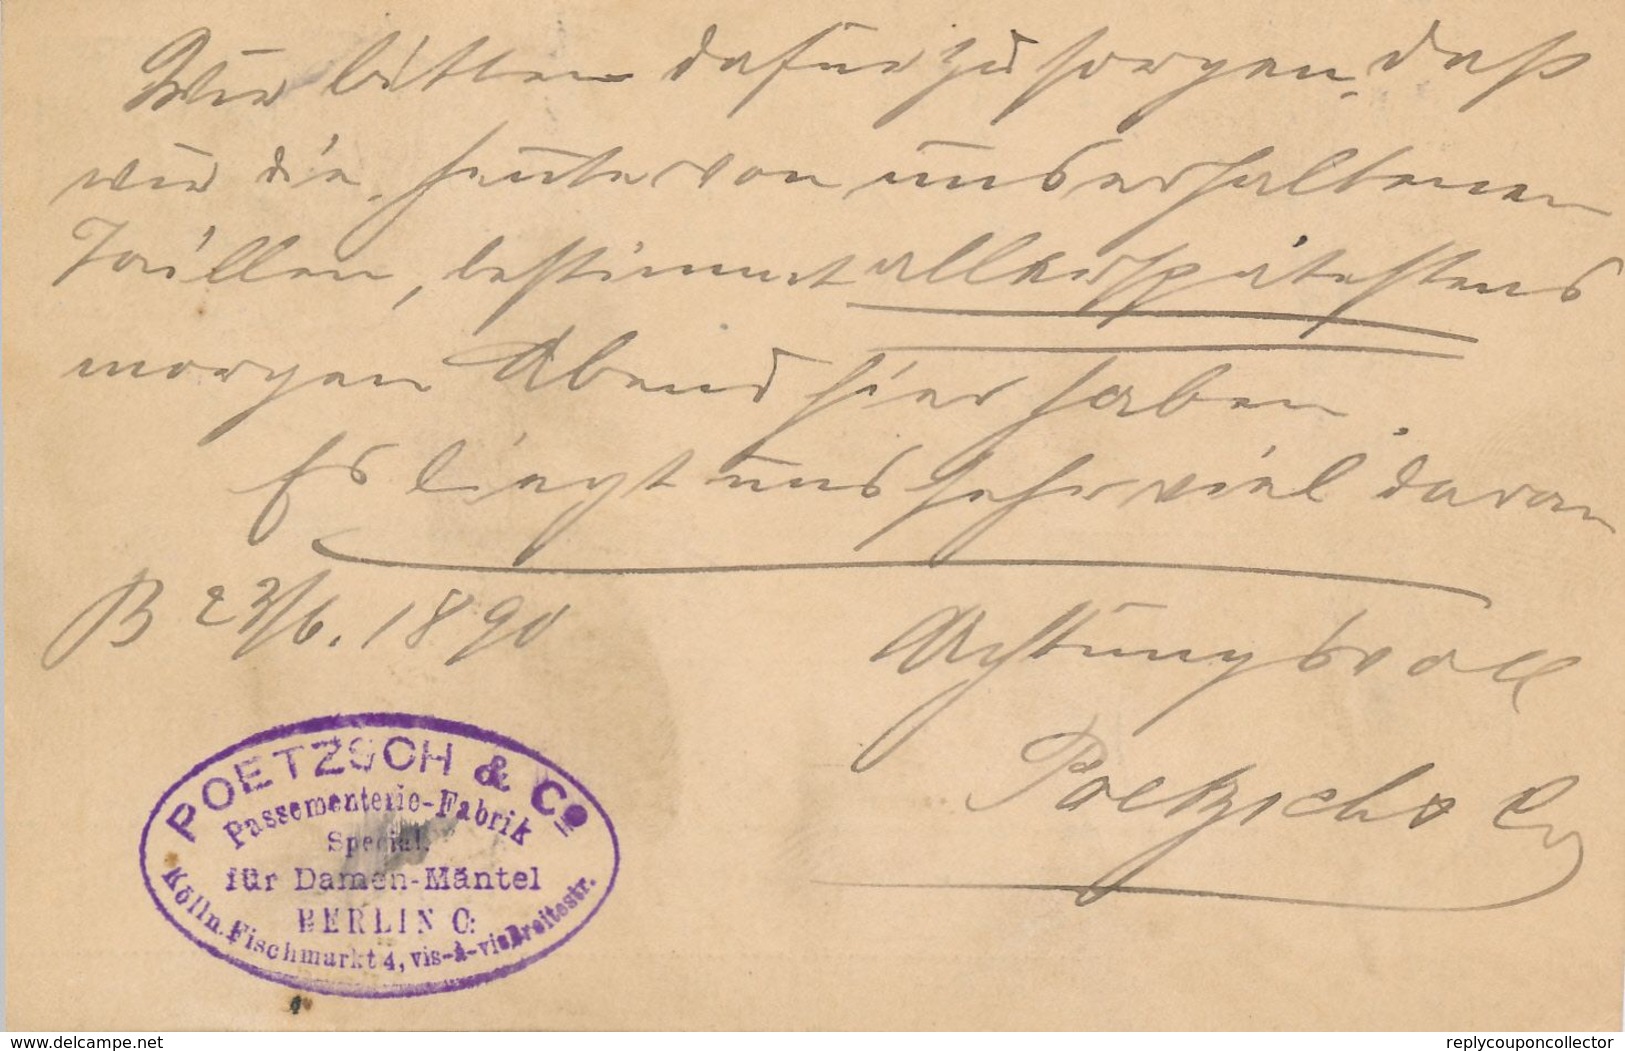 Wir bitten dafür zu sorgen, daß
wir die, heute von uns erhaltenen
Taillen, bestimmt allerspätestens
morgen Abend hier haben.
Es liegt uns sehr viel daran
B 23/6. 1890
Achtungsvoll
Poetzsch & Co
POETZSCH & Co
Passementerie-Fabrik
Special.
für Damen-Mäntel
BERLIN C.
Kölln. Fischmarkt 4, vis-à-vis Breitestr.
www.delcampe.net
replycouponcollector